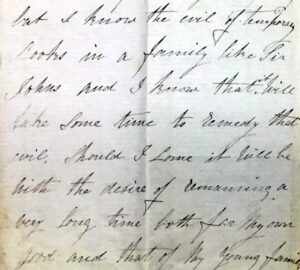 but I know the evil of temporary
Cooks in a family like Sir
Johns and I know that it will
take some time to remedy that
evil, Should I come it will be
with the desire of remaining a
very long time both for my own
good and that of my young family